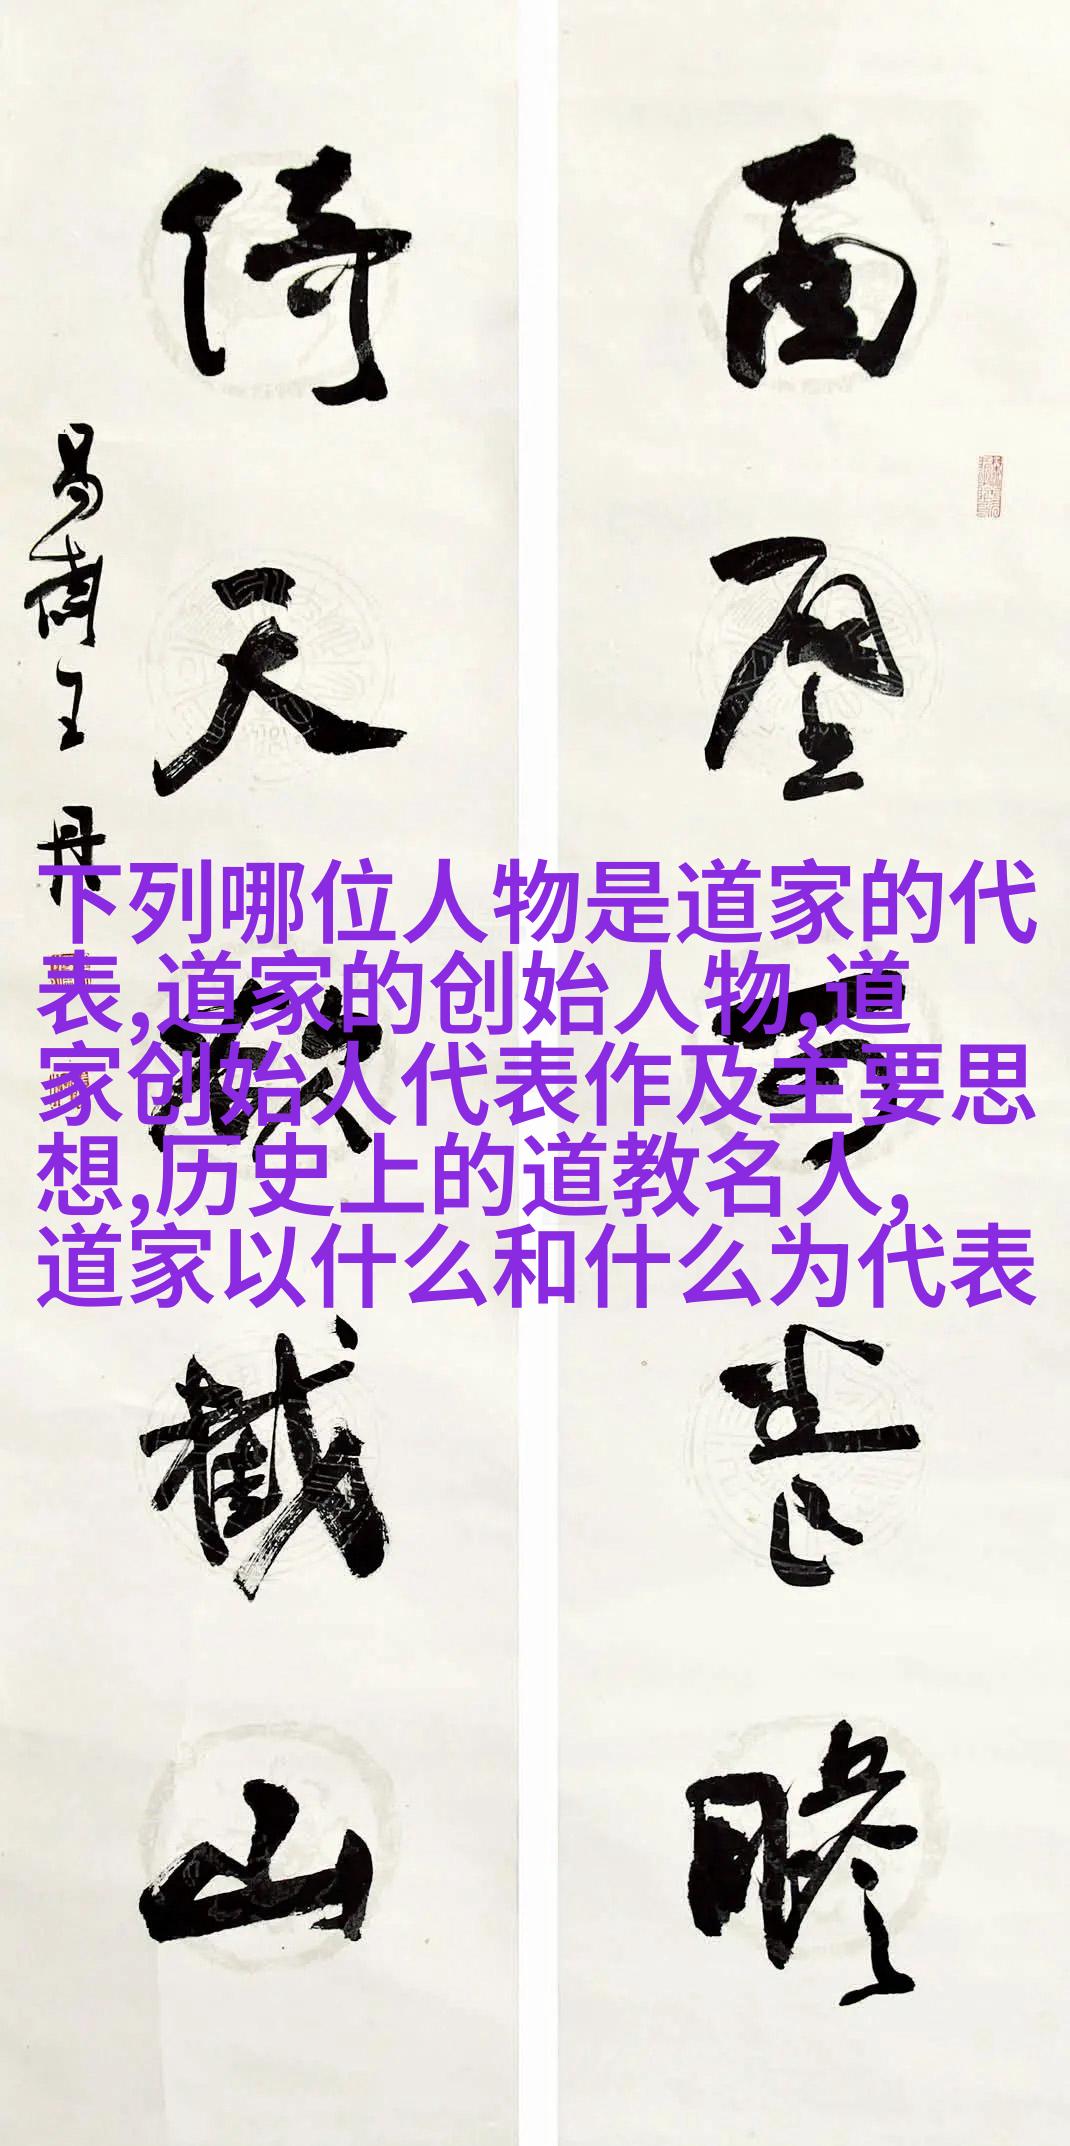 西
壁
可
長
瞻
倚
天
截
山
易
王
丹
下列哪位人物是道家的代
表,道家的创始人物,道
家创始人代表作及主要思
想,历史上的道教名人,
道家以什么和什么为代表